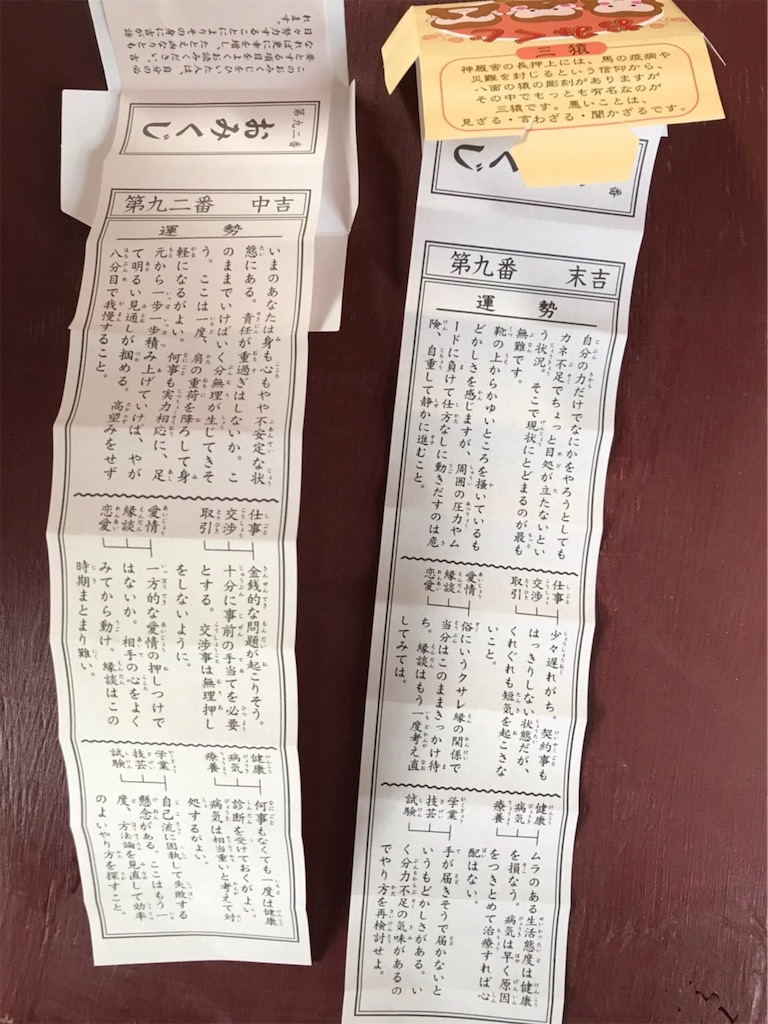 このおみくじをひいた人は、自分の必
要とする項目をよくお読みください。吉
なれば更に幸を増し、たとえ凶なりとも
日努力することによりその身に吉が訪
れます。
第九二番
おみくじ
第九二番 中吉
運勢
いまのあなたは身も心もやや不安定な状
態にある。責任が重過ぎはしないか。こ
のままでいけばいく分無理が生じてきそ
う。ここは一度、肩の重荷を降ろして身
軽になるがよい。何事も実力相応に、足
元から一歩一歩積み上げていけば、やが
て明るい見通しが掴める。高望みをせず
八分目で我慢すること。
仕事
交渉
取引
金銭的な問題が起こりそう。
十分に事前の手当てを必要
とする。交渉事は無理押し
をしないように。
愛情
縁談
恋愛
一方的な愛情の押しつけで
はないか。相手の心をよく
みてから動け。縁談はこの
時期まとまり難い。
健康
病気
療養
何事もなくても一度は健康
診断を受けておくがよい。
病気は相当重いと考えて対
処するがよい。
学業
技芸
試験
自己流に固執して失敗する
懸念がある。ここはもう一
度、方法論を見直して効率
のよいやり方を探すこと。
三猿
神厩舎の長押上には、馬の疫病や
災難を封じるという信仰から、
八面の猿の彫刻がありますが
その中でもっとも有名なのが
三猿です。悪いことは、
見ざる・言わざる・聞かざるです。
番
みくじ
第九番 末吉
運勢
自分の力だけでなにかをやろうとしても
カネ不足でちょっと目処が立たないとい
う状況。そこで現状にとどまるのが最も
無難です。
靴の上からかゆいところを掻いているも
どかしさを感じますが、周囲の圧力やム
ードに負けて仕方なしに動きだすのは危
険、自重して静かに進むこと。
仕事
交渉
取引
少々遅れがち。契約事も
はっきりしない状態だが、
くれぐれも短気を起こさな
いこと。
愛情
縁談
恋愛
俗にいうクサレ縁の関係で
当分はこのままきっかけ待
ち。縁談はもう一度考え直
してみては。
健康
病気
療養
ムラのある生活態度は健康
を損なう。病気は早く原因
をつきとめて治療すれば心
配はない。
学業
技芸
試験
手が届きそうで届かないと
いうもどかしさがある。い
く分力不足の気味があるの
でやり方を再検討せよ。